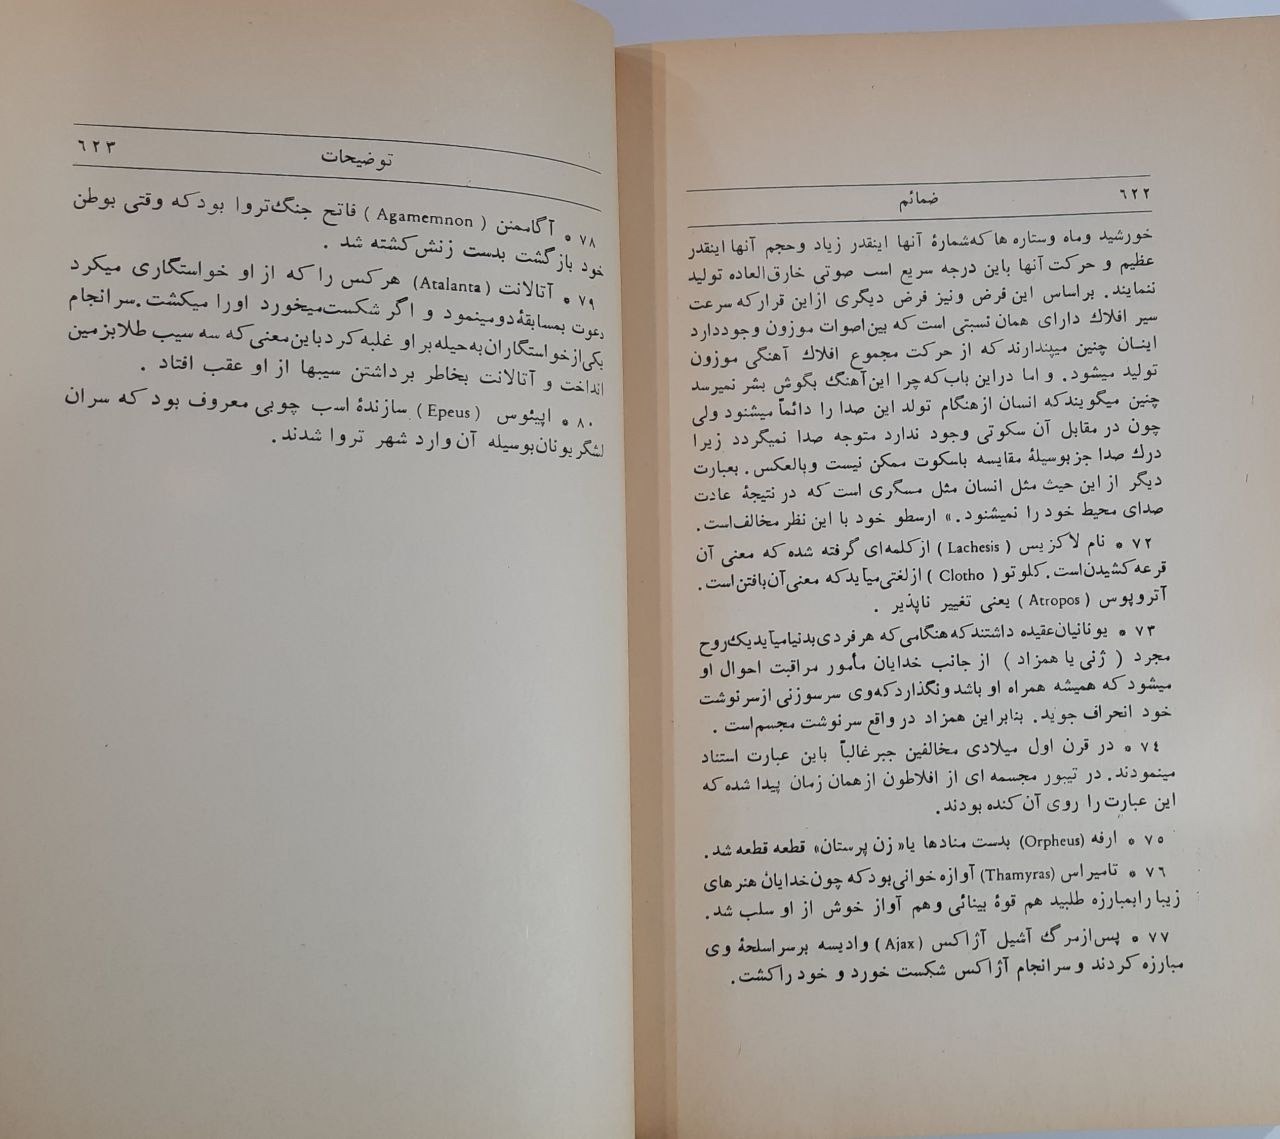 ۶۲۲ ضمائم
خورشید وماه وستاره ها که شمارهٔ آنها اینقدر زیاد وحجم آنها اینقدر
عظیم و حرکت آنها باین درجه سریع است صوتی خارق‌العاده تولید
ننمایند. براساس این فرض ونیز فرض دیگری ازاین قرارکه سرعت
سیر افلاك دارای همان نسبتی است که بین‌اصوات موزون وجوددارد
اینان چنین میپندارند که از حرکت مجموع افلاك آهنگی موزون
تولید میشود. و اما دراین باب‌که‌چرا این‌آهنگ بگوش بشر نمیرسد
چنین میگویندکه انسان ازهنگام تولد این صدا را دائماً میشنود ولی
چون در مقابل آن سکوتی وجود ندارد متوجه صدا نمیگردد زیرا
درك صدا جزبوسیلهٔ مقایسه باسکوت ممکن نیست وبالعکس. بعبارت
دیگر از این حیث مثل انسان مثل مسگری است که درنتیجهٔ عادت
صدای محیط خود را نمیشنود.» ارسطو خود با این نظر مخالف‌است.
۷۲ * نام لاکزیس (Lachesis) ازکلمه‌ای گرفته شده که معنی آن
قرعه‌کشیدن‌است. کلوتو (Clotho) ازلغتی‌میآیدکه معنی‌آن‌بافتن‌است.
آتروپوس (Atropos) یعنی تغییر ناپذیر .
۷۳ * یونانیان‌عقیده داشتندکه‌هنگامی‌که هرفردی‌بدنیامیآیدیك‌روح
مجرد ( ژنی یا همزاد ) از جانب خدایان مأمور مراقبت احوال او
میشود که همیشه همراه او باشدونگذاردکه‌وی سرسوزنی ازسرنوشت
خود انحراف جوید. بنابراین همزاد درواقع سرنوشت مجسم‌است .
۷۴ * در قرن اول میلادی مخالفین جبرغالباً باین عبارت استناد
مینمودند. در تیبور مجسمه ای از افلاطون ازهمان زمان پیدا شده که
این عبارت را روی آن کنده بودند.
۷۵ * ارفه (Orpheus) بدست منادها یا« زن پرستان» قطعه قطعه شد.
۷۶ * تامیراس (Thamyras) آوازه خوانی‌بودکه چون‌خدایان هنرهای
زیبا رابمبارزه طلبید هم قوهٔ بینائی وهم آواز خوش از او سلب شد.
۷۷ * پس‌ازمرگ آشیل آژاکس (Ajax) وادیسه برسراسلحهٔ وی
مبارزه کردند وسرانجام آژاکس شکست خورد و خود راکشت.
توضیحات ۶۲۳
۷۸ * آگاممنن (Agamemnon) فاتح جنگ‌تروا بودکه وقتی بوطن
خود بازگشت بدست زنش‌کشته شد .
۷۹ * آتالانت (Atalanta) هرکس را که از او خواستگاری میکرد
دعوت بمسابقهٔ‌دومینمود و اگر شکست‌میخورد اورا میکشت.سرانجام
یکی‌ازخواستگاران‌به‌حیله‌بر او غلبه کردباین‌معنی‌که سه سیب طلابزمین
انداخت و آتالانت بخاطر برداشتن سیبها از او عقب افتاد .
۸۰ * اپیئوس (Epeus) سازندهٔ اسب چوبی معروف بود که سران
لشگریونان‌بوسیله آن‌وارد شهر تروا شدند.